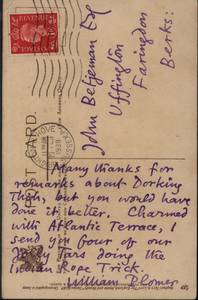 POST CARD.
John Betjeman Esq
Uffington
Faringdon
Berks:
Many thanks for
remarks about Dorking
Thigh, but you would have
done it better. Charmed
with Atlantic Terrace, I
send you four of our
Jolly Tars doing the
Indian Rope Trick.
William Plomer